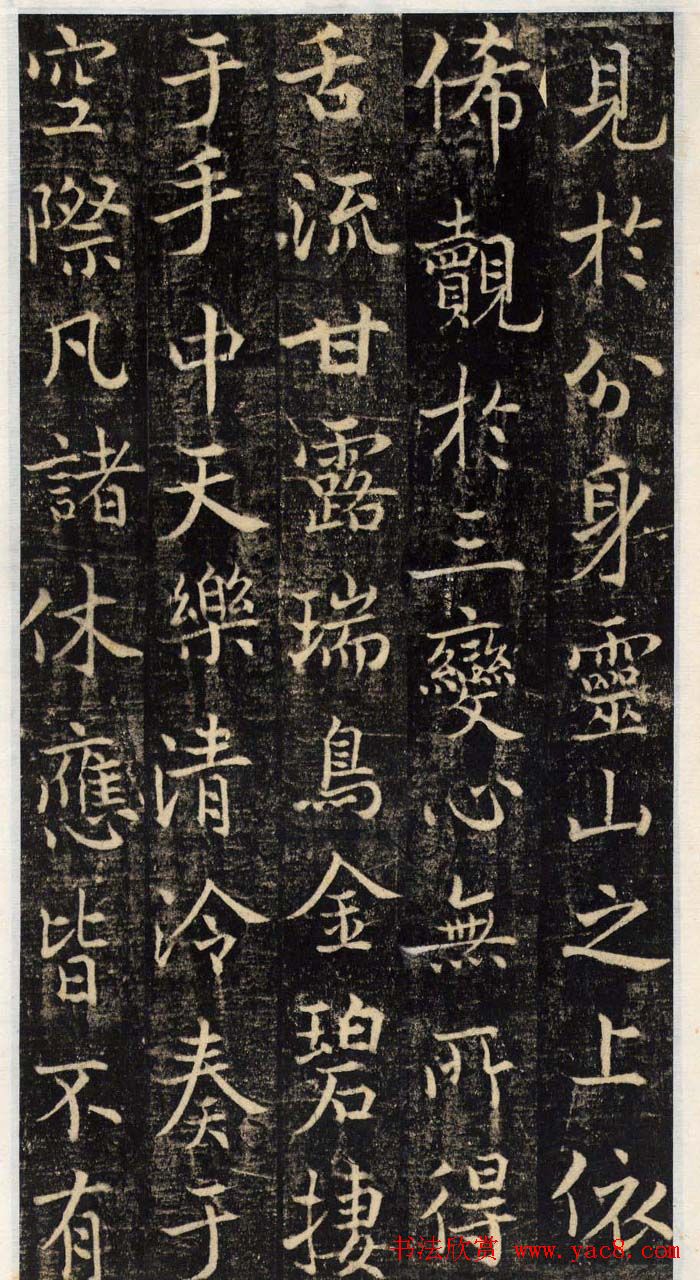 見於分身靈山之上依
俙覿於三變心無所得
舌流甘露瑞鳥金碧捿
于手中天樂清泠奏于
空際凡諸休應皆不有
书法欣赏 www.yac8.com